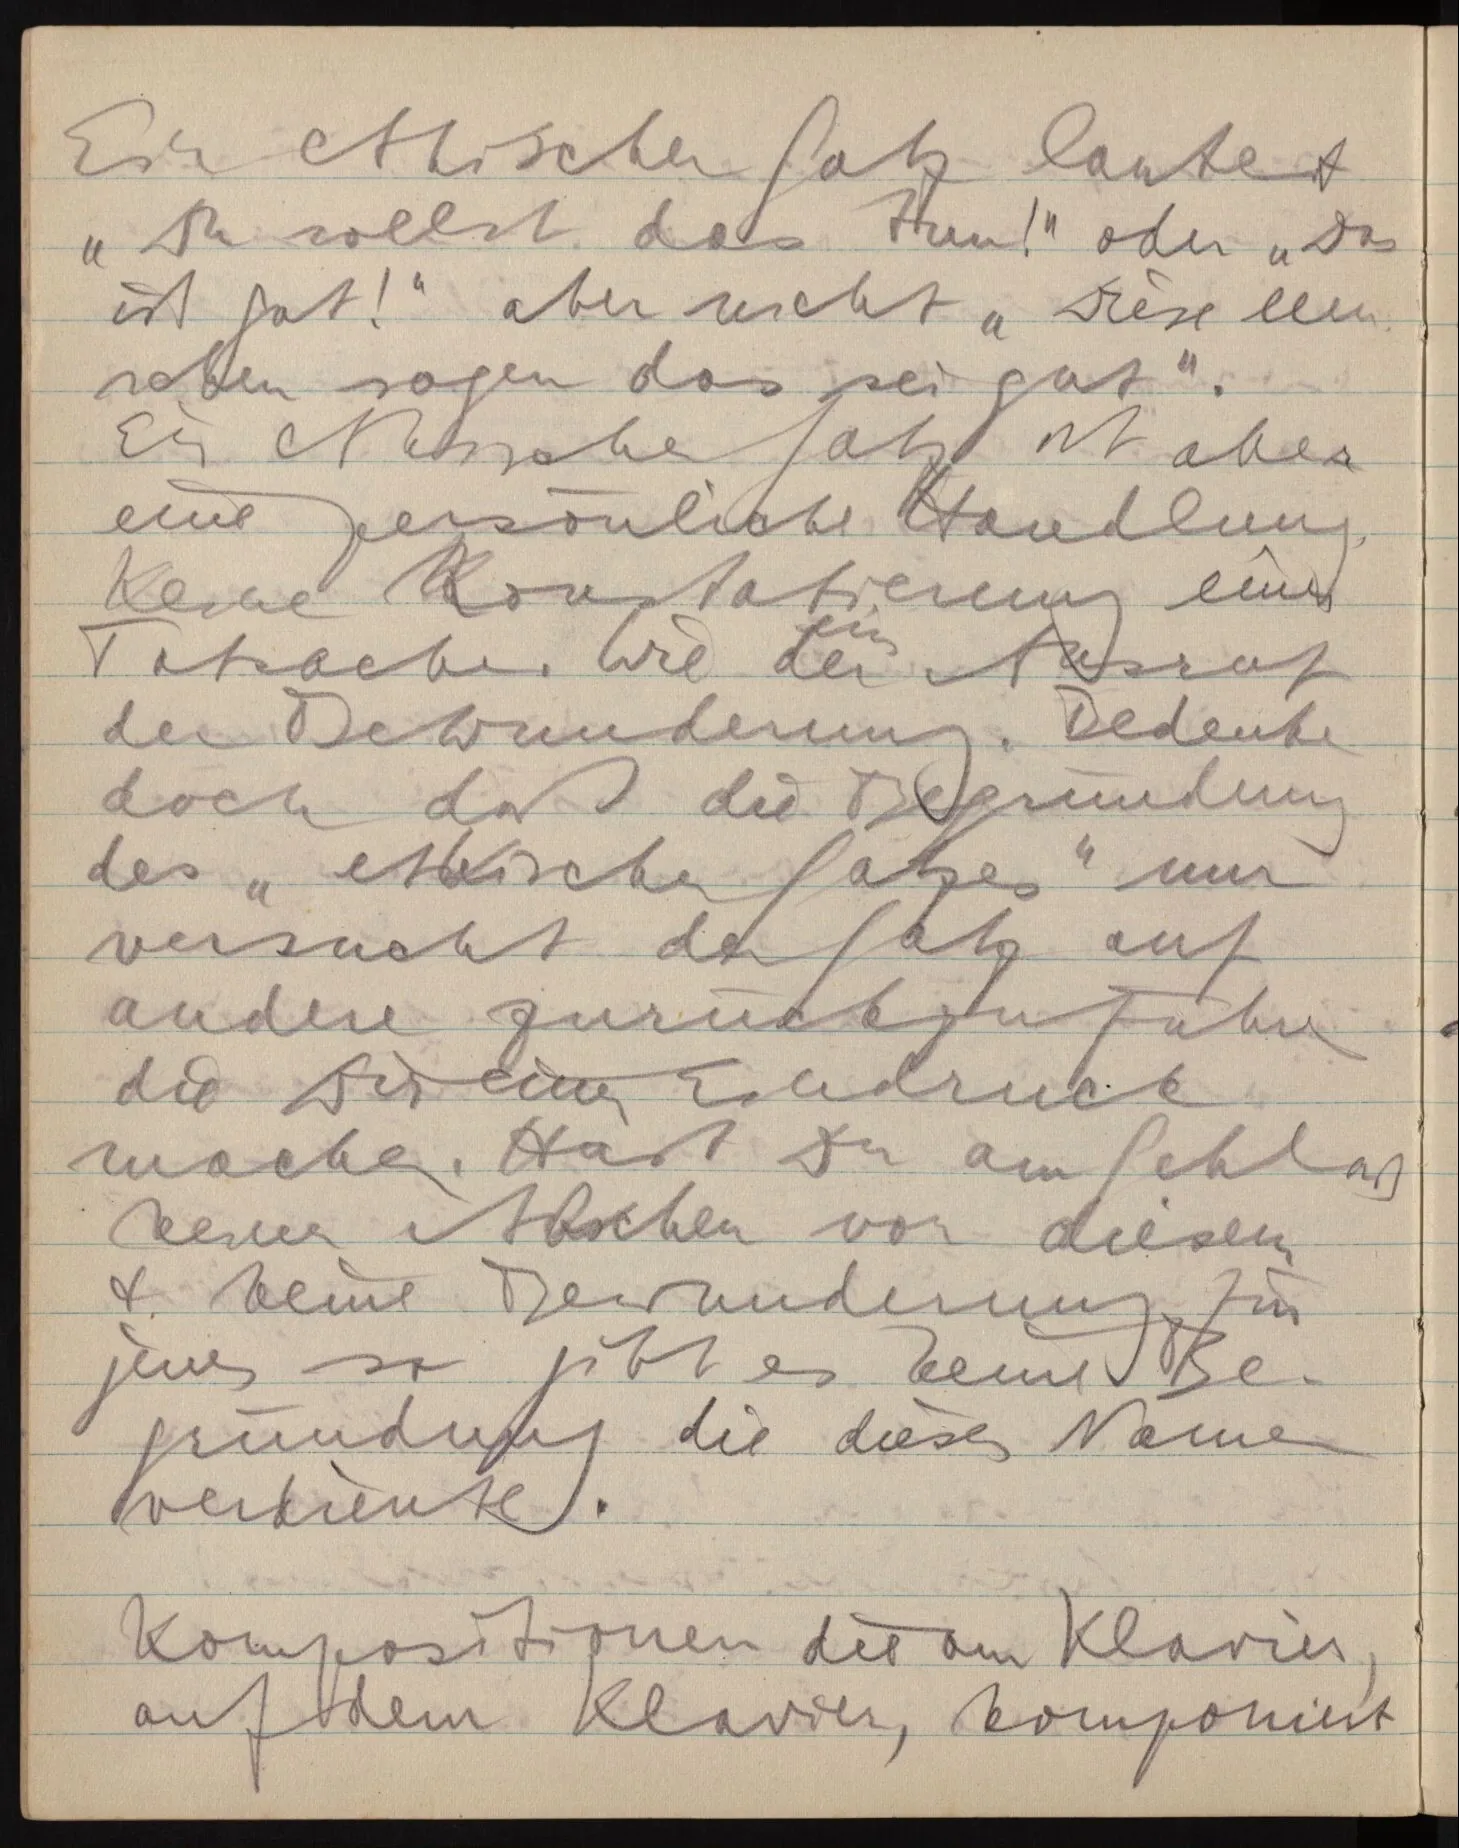 Ein ethischer Satz lautet
„Du sollst das tun!“ oder „Das
ist gut!“ aber nicht „Diese Men
schen sagen das sei gut“.
Ein ethischer Satz ist aber
eine persönliche Handlung.
Keine Konstatierung einer
Tatsache. Wie ein Ausruf
der Bewunderung. Bedenke
doch daß die Begründung
des „ethischen Satzes“ nur
versucht den Satz auf
andere zurückzuführen
die Dir einen Eindruck
machen. Hast Du am Schluß
keinen Abscheu vor diesem
& keine Bewunderung für
jenes so gibt es keine Be-
gründung die diesen Namen
verdiente.
Kompositionen die am Klavier,
auf dem Klavier, komponiert